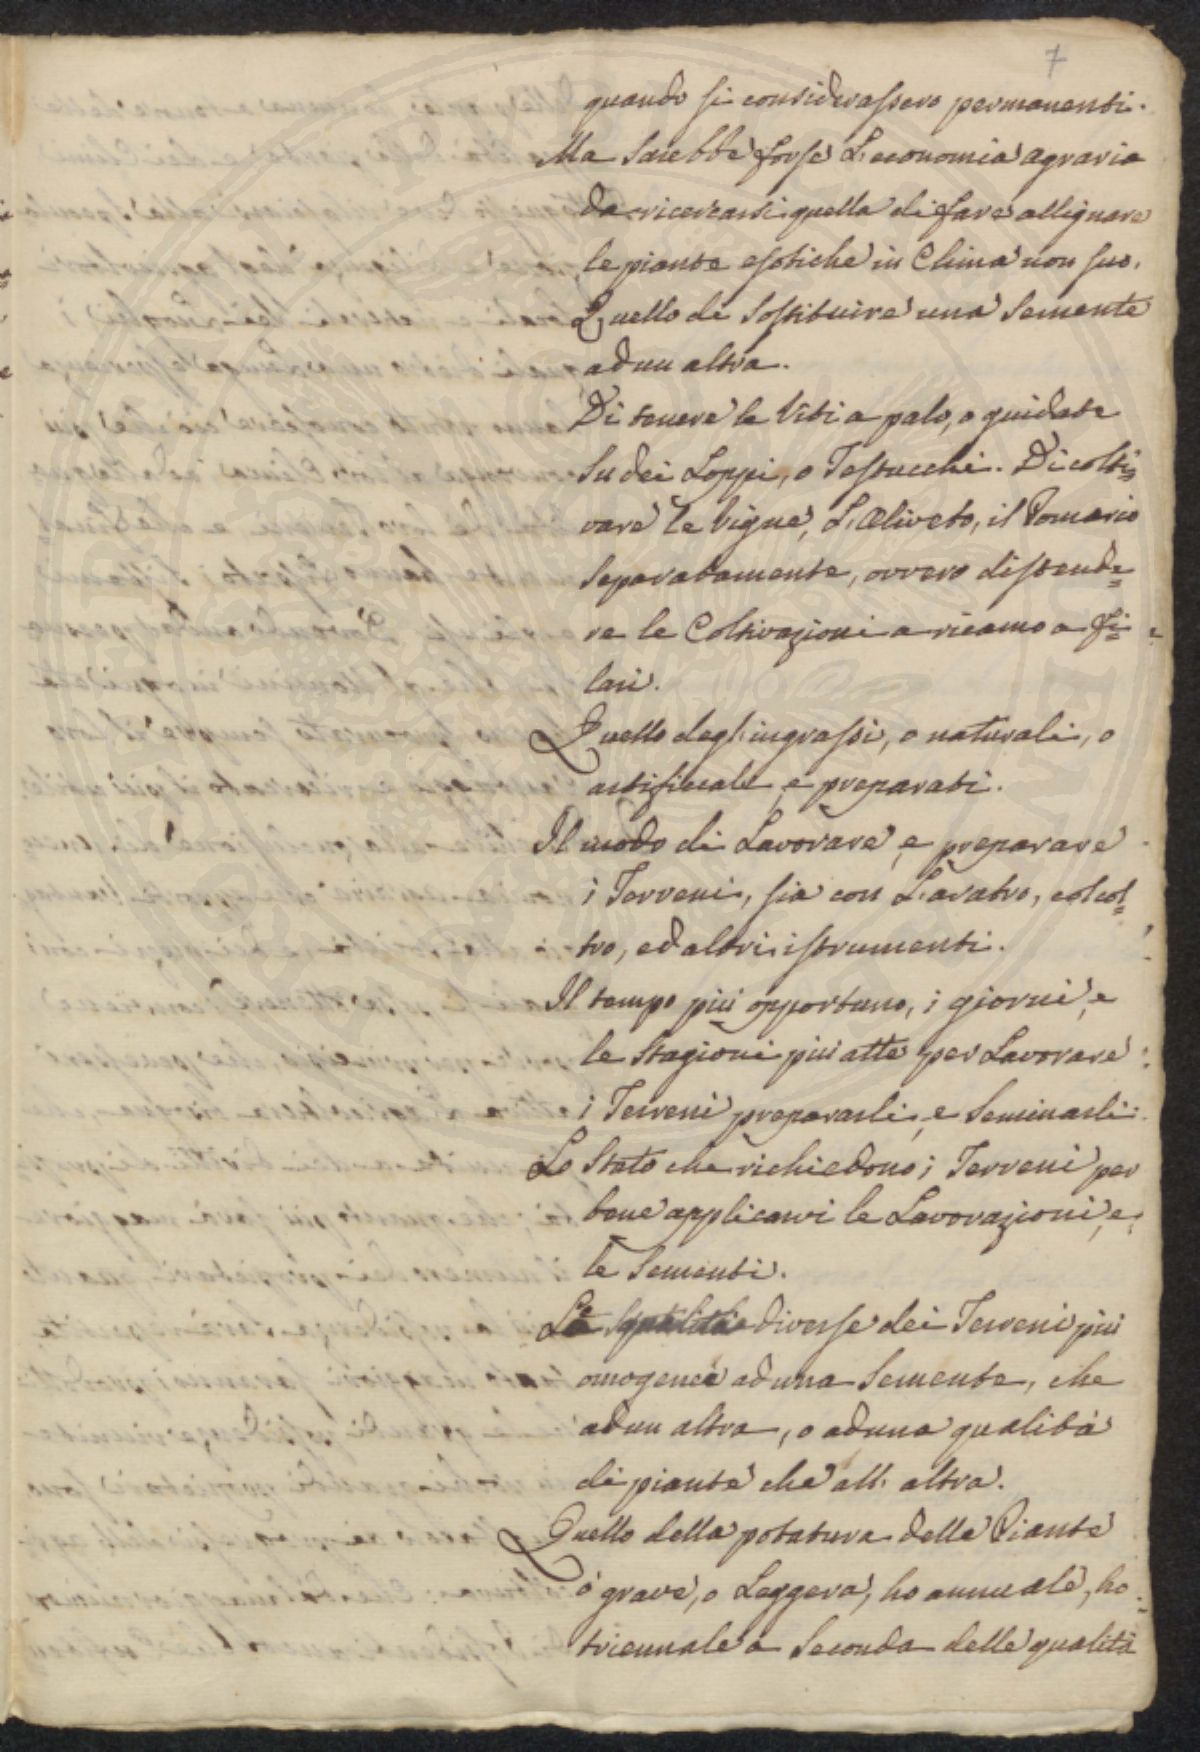 7
quando si considerassero permanenti.
Ma sarebbe forse L'economia agraria
da ricercarsi quella di fare allignare
le piante esotiche in Clima non suo.
Quello di sostituire una Semente
ad un altra.
Di tenere le Viti a palo, o guidate
su dei Loppi, o Testucchi. Di colti=
vare le Vigne, L'Oliveto, il Pomario
separatamente, ovvero distende=
re le Coltivazioni a ricamo a fi=
lari.
Quello degl'ingrassi, o naturali, o
artificiali e preparati.
Il modo di Lavorare, e preparare
i Terreni, sia con L'aratro, col col=
tro, ed altri istrumenti.
Il tempo più opportuno, i giorni, e
le Stagioni più atte per Lavorare
i Terreni prepararli, e Seminarli:
Lo Stato che richiedono i Terreni per
bene applicarvi le Lavorazioni, e
le Sementi.
Le diverse dei Terreni più
omogenee ad una Semente, che
ad un altra, o ad una qualità
di piante che all'altra.
Quello della potatura delle Piante
o grave, o Leggera, ho annuale, ho
triennale a Seconda delle qualità